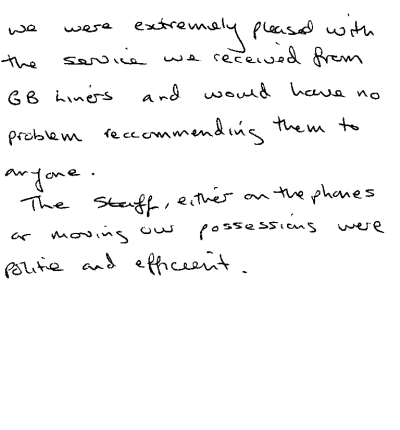 we were extremely pleased with
the service we received from
GB Liners and would have no
problem reccommending them to
anyone.
The staff, either on the phones
or moving our possessions were
polite and efficient.